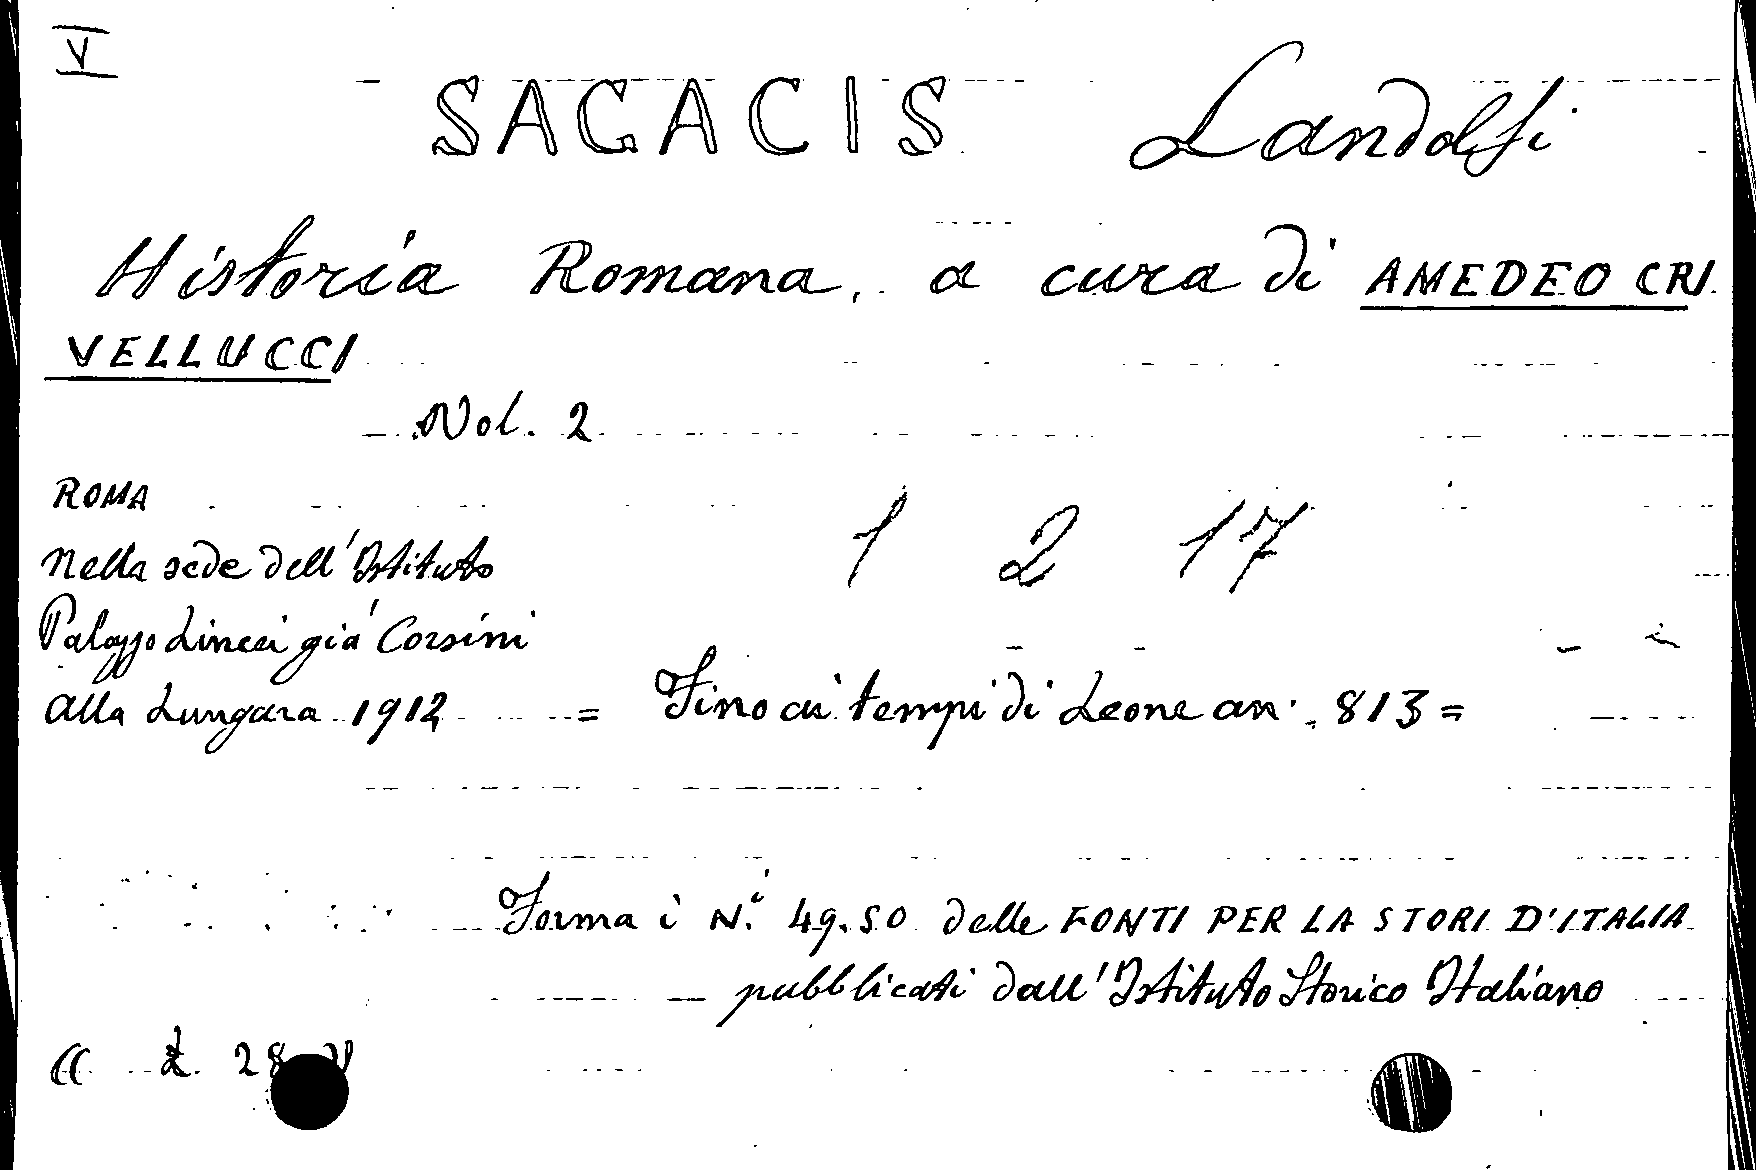 V
SAGACIS Landolfi
Historia Romana, a cura di AMEDEO CRI
VELLUCCI
Vol. 2
ROMA
1 2 17
Nella sede dell'Istituto
Palazzo Lincei già Corsini
alla Lungara 1912 = Fino ai tempi di Leone an. 813 =
Forma i N.i 49.50 delle FONTI PER LA STORI D'ITALIA
pubblicati dall'Istituto Storico Italiano
(( £. 28 ))